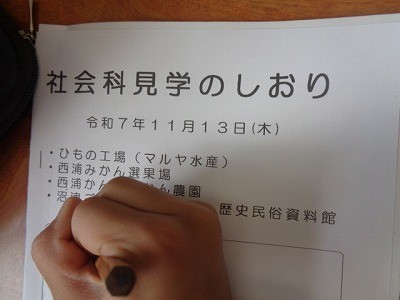 社会科見学のしおり
令和7年11月13日(木)
・ひもの工場(マルヤ水産)
・西浦みかん選果場
・西浦か 農園
・沼津 歴史民俗資料館